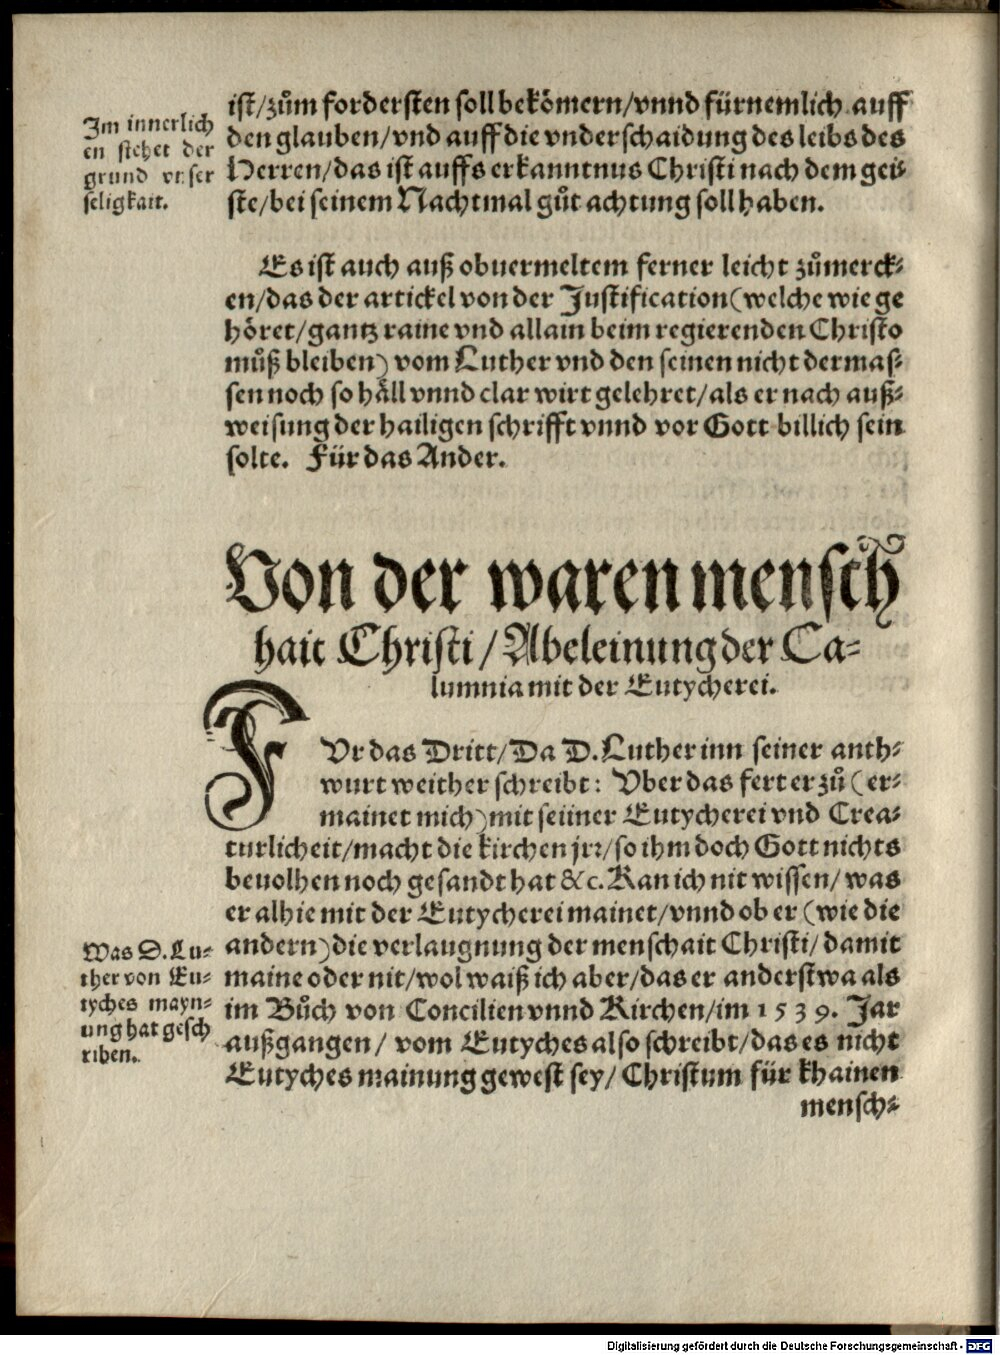 Im innerlich
en stehet der
grund vnser
seligkait.
ist/zům fordersten soll bekömern/vnnd fürnemlich auff
den glauben/vnd auff die vnderschaidung des leibs des
Herren/das ist auffs erkanntnus Christi nach dem gei⸗
ste/bei seinem Nachtmal gůt achtung soll haben.
Es ist auch auß obuermeltem ferner leicht zůmerck⸗
en/das der artickel von der Justification(welche wie ge
höret/gantz raine vnd allain beim regierenden Christo
můß bleiben) vom Luther vnd den seinen nicht dermas⸗
sen noch so häll vnnd clar wirt gelehret/als er nach auß⸗
weisung der hailigen schrifft vnnd vor Gott billich sein
solte. Für das Ander.
Von der waren mensch
hait Christi/Abeleinung der Ca⸗
lumnia mit der Eutycherei.
FVr das Dritt/Da D.Luther inn seiner anth⸗
wurt weither schreibt: Vber das fert er zů(er⸗
mainet mich)mit seiiner Eutycherei vnd Crea⸗
turlicheit/macht die kirchen jrr/so ihm doch Gott nichts
beuolhen noch gesandt hat &c. Kan ich nit wissen/was
er alhie mit der Eutycherei mainet/vnnd ob er(wie die
andern)die verlaugnung der menschait Christi/damit
maine oder nit/wol waiß ich aber/das er anderstwa als
im Bůch von Concilien vnnd Kirchen/im 1539. Jar
außgangen/ vom Eutyches also schreibt/das es nicht
Eutyches mainung gewest sey/Christum für khainen
mensch⸗
Was D.Lu⸗
ther von Eu⸗
tyches mayn⸗
ung hat gesch
riben.
Digitalisierung gefördert durch die Deutsche Forschungsgemeinschaft - DFG